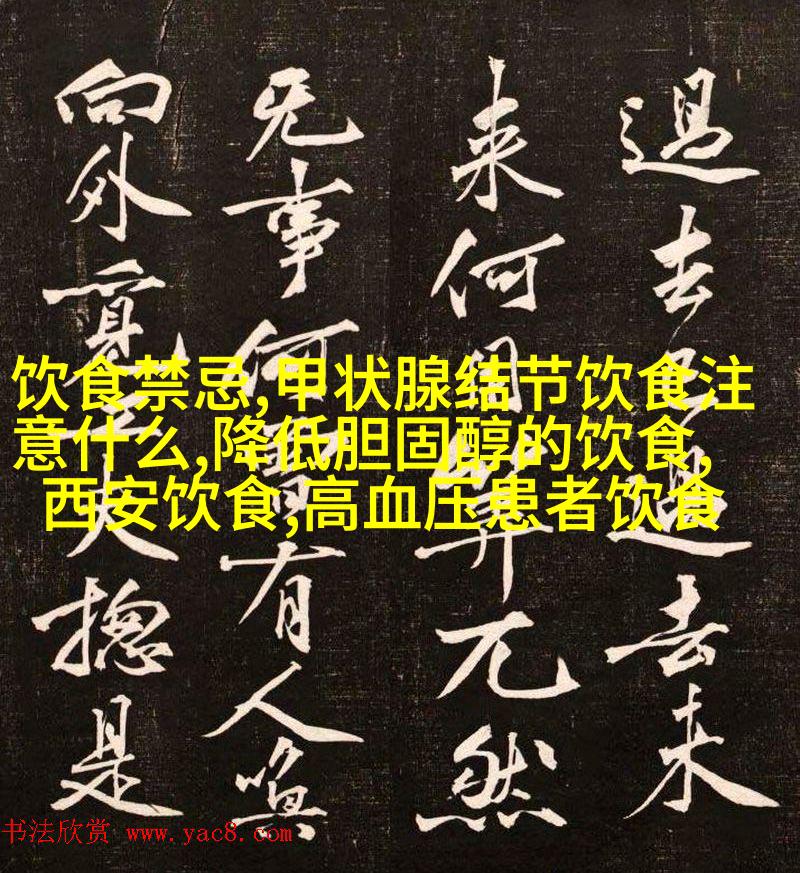 過去已過去未
来何用算兀然
无事何曾有人喚
向外覓功夫揔是
饮食禁忌,甲状腺结节饮食注
意什么,降低胆固醇的饮食,
西安饮食,高血压患者饮食
书法欣赏 www.yac8.com